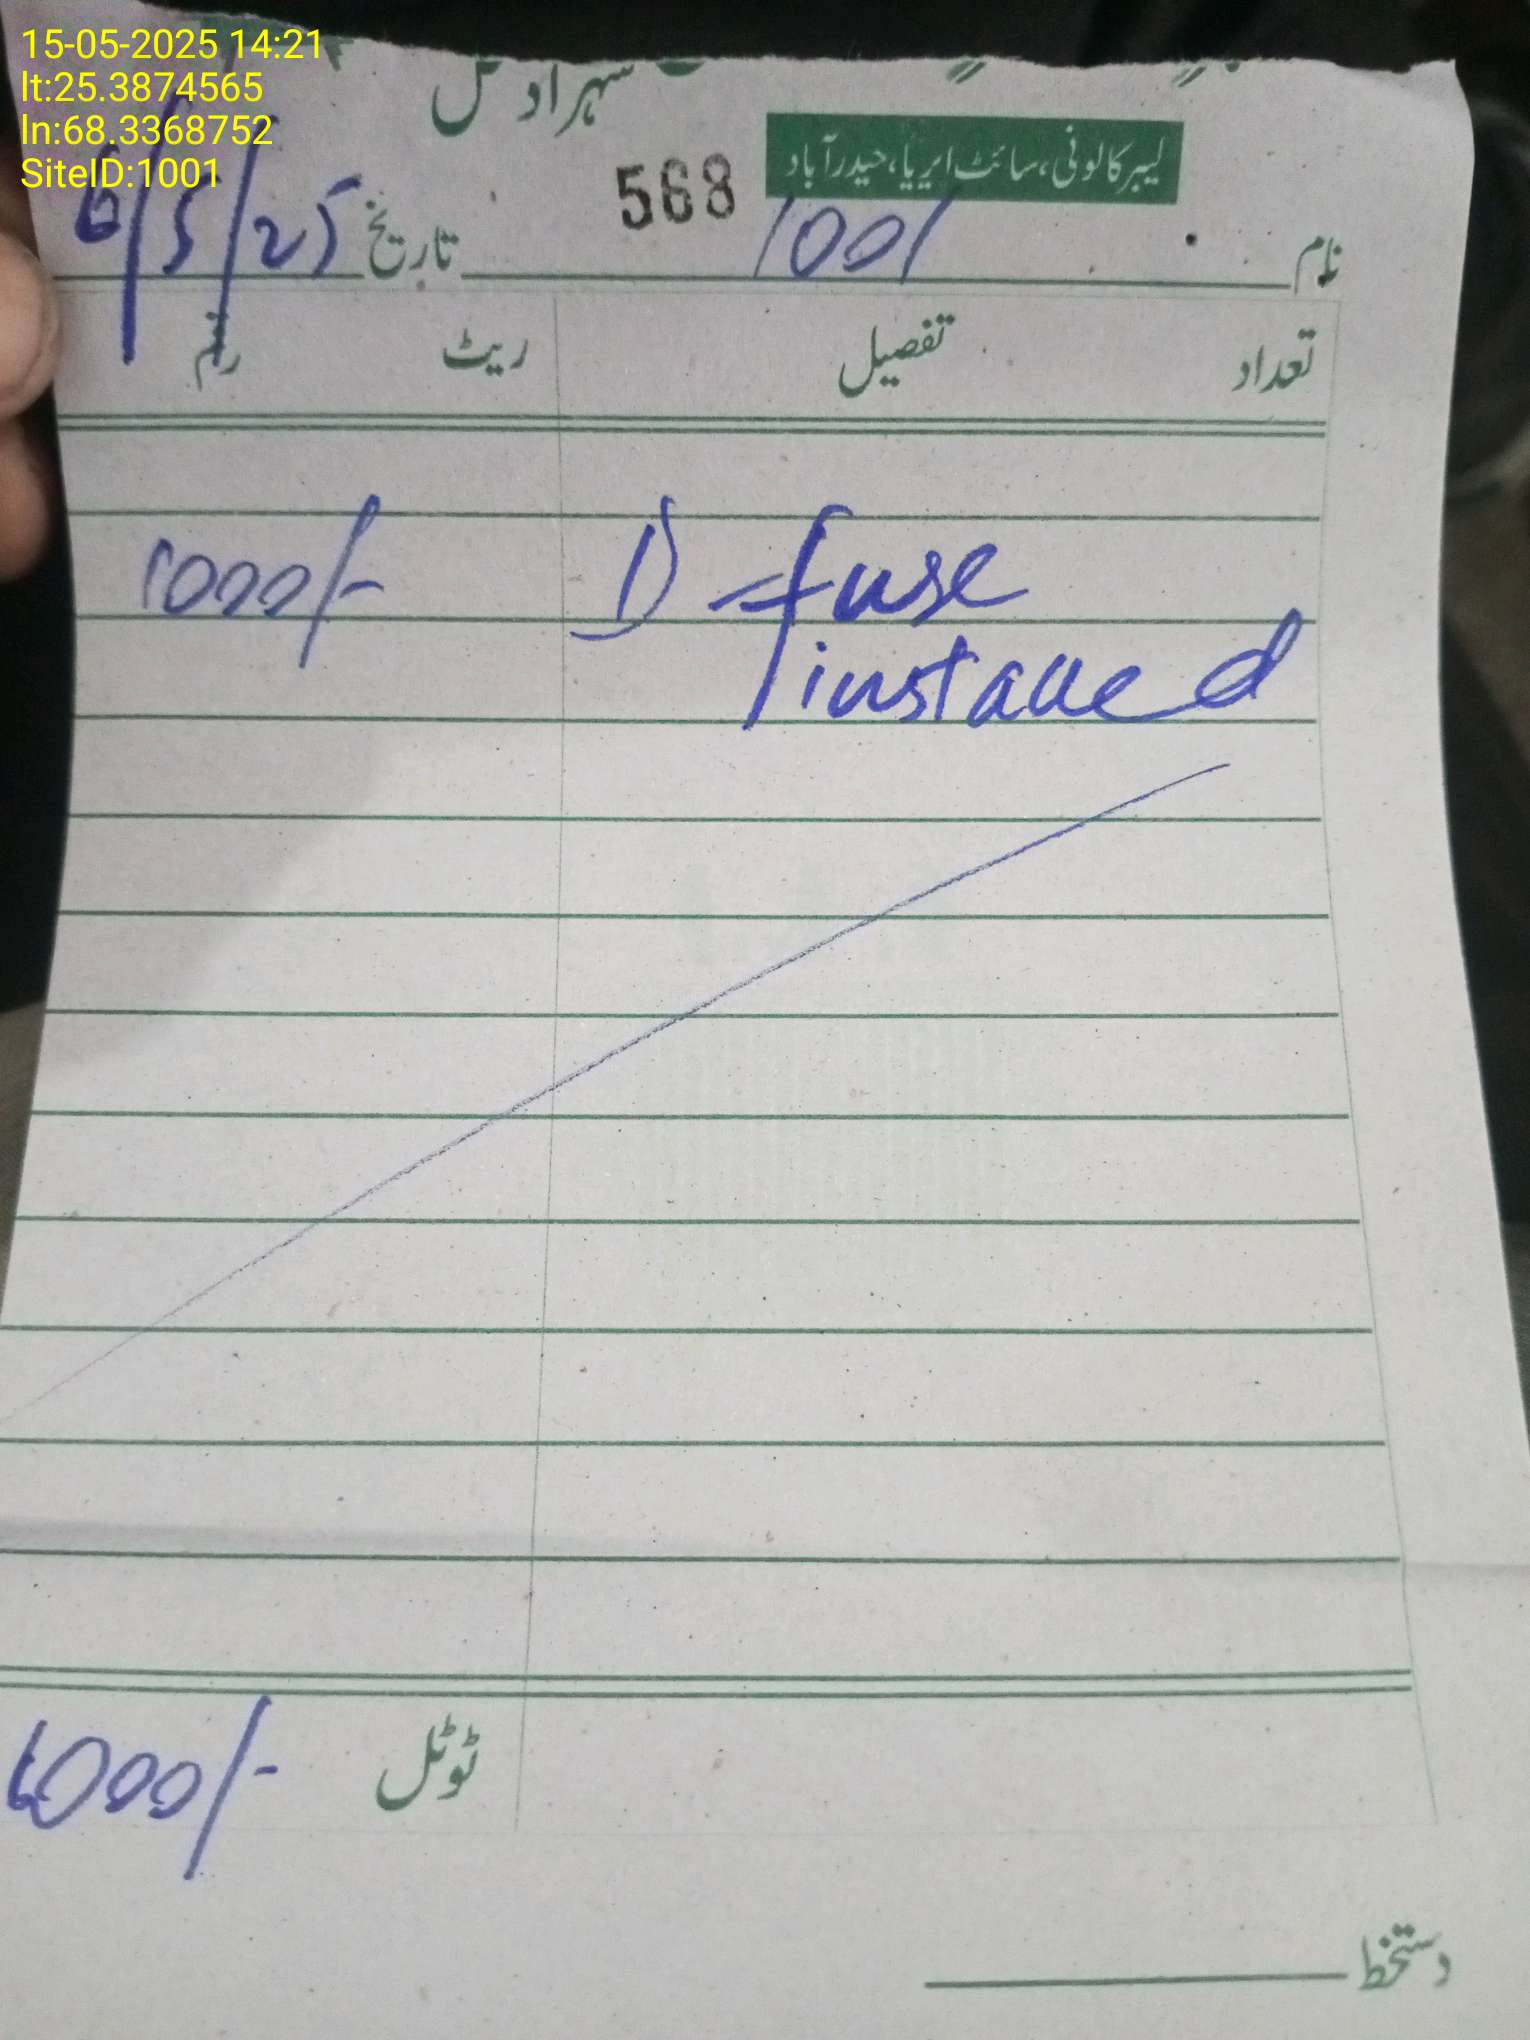 15-05-2025 14:21
lt:25.3874565
ln:68.3368752
SiteID:1001
لیبر کالونی، سائٹ ایریا، حیدرآباد
568
نام 1001 تاریخ 6/5/25
تعداد تفصیل ریٹ رقم
1) fuse 1000/-
installed
ٹوٹل 1000/-
دستخط